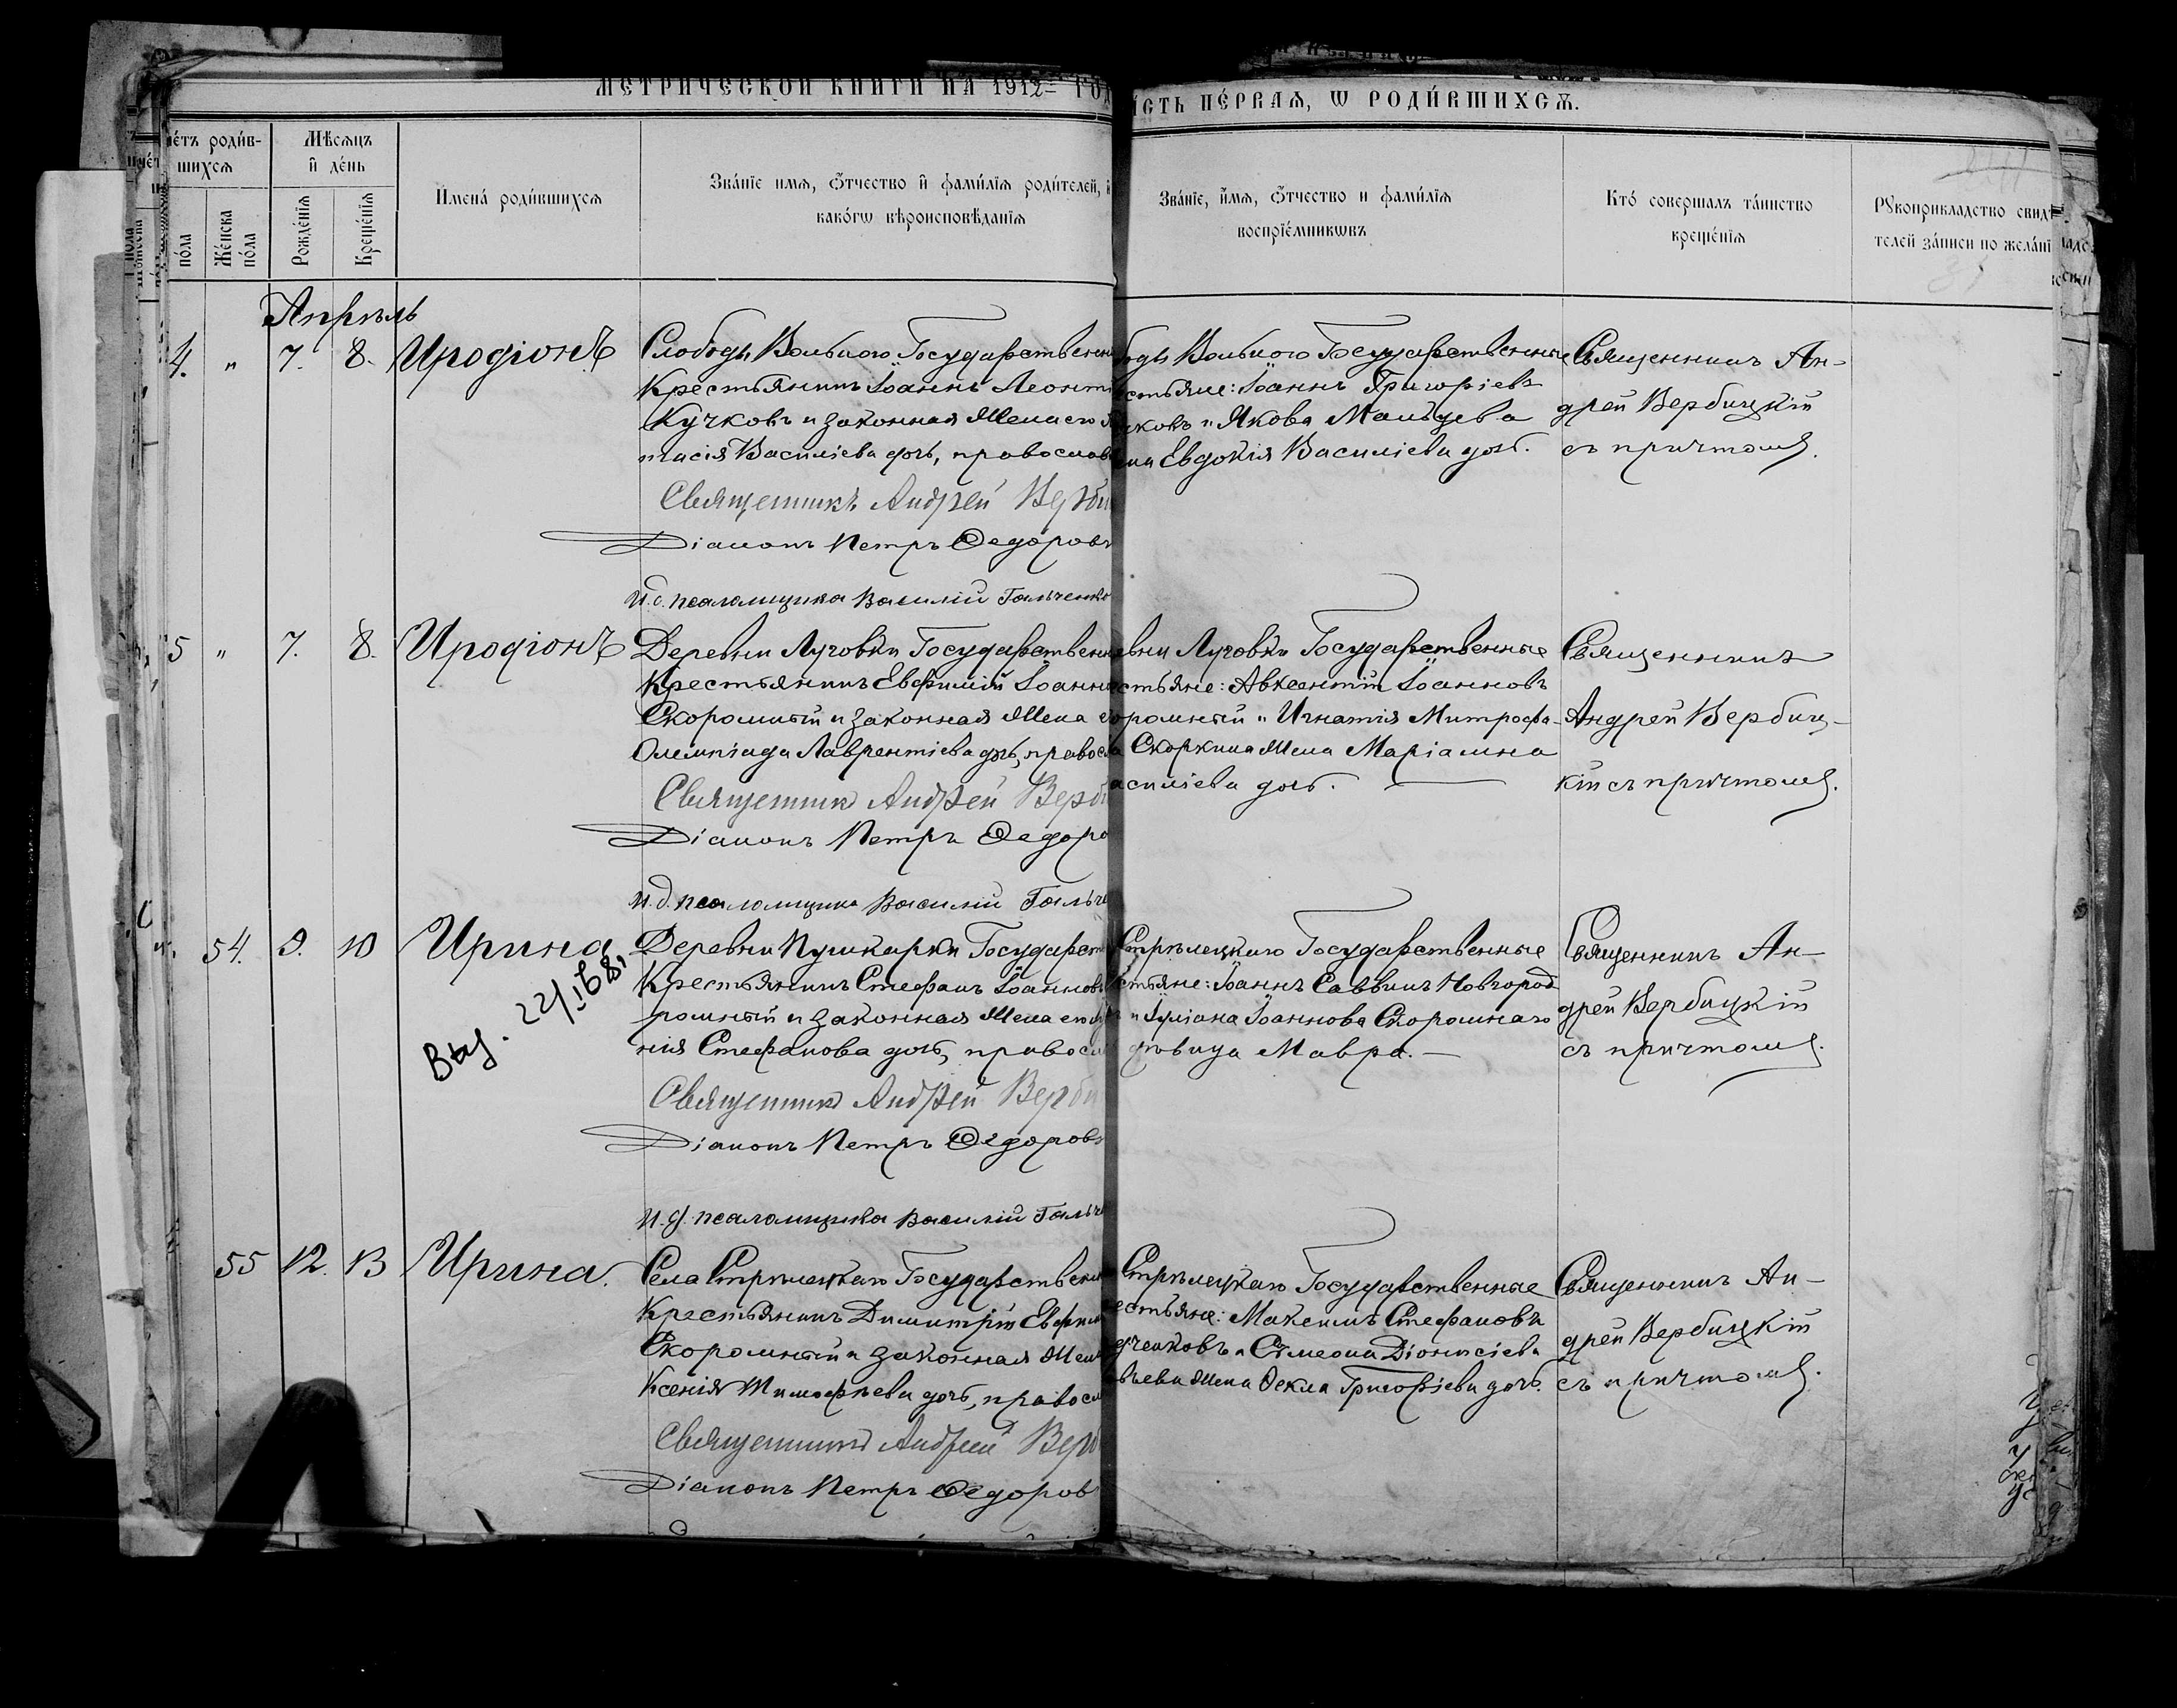 МЕТРИЧЕСКОЙ КНИГИ НА 1912 ГОД
СТЬ ПЕ́РВАЯ, Ѡ РОДИ́ВШИХСѦ.
чéтъ роди́в-
шихсѧ
пóла
Же́нска
пóла
Мѣ́сѧцъ
и҆ де́нь
Рожде́нїѧ
Креще́нїѧ
И҆мена̀ роди́вшихсѧ
Зва́нїе имѧ, ѻ҆́тчество и҆ фами́лїѧ роди́телей, и
како́гѡ вѣроисповѣ́данїѧ
Зва́нїе, и҆́мѧ, ѻ҆́тчество и фами́лїѧ
воспрїе́мникѡвъ
Кто̀ совершалъ та́инство
креще́нїѧ
Рꙋкоприкладство свидѣ
телей за́писи по жела́нї
Апрѣль
4. " 7. 8. Иродіонъ
Слободы Вольного Государственн
Крестьянинъ Іоаннъ Леонті
Кучковъ и законная жена его А
тасія Василіева дочь, православ
Священникъ Андрей Верби
Діаконъ Петръ Ѳедоровъ
И.д. псаломщика Василій Гальченко
боды Вольного Государственные
стьяне: Іоаннъ Григоріевъ
чковъ и Якова Мальцева
ена Евдокія Василіева дочь.
Священникъ Ан-
дрей Вербицкій
съ причтомъ.
5 " 7. 8. Иродіонъ
Деревни Луговки Государствен
Крестьянинъ Евфимій Іоанно
Скоромный и законная жена е
Олимпіада Лаврентіева дочь, правосл
Священник Андрей Верб
Діаконъ Петръ Ѳедоро
И.д. псаломщика Василій Гальче
евни Луговки Государственные
стьяне: Авксентій Іоанновъ
оромный и Игнатія Митрофа-
а Скоркина жена Маріамна
асиліева дочь.
Священникъ
Андрей Вербиц-
кій съ причтомъ.
54. 9. 10 Ирина
Выд. 22/I 68,
Деревни Пушкарки Государст
Крестьянинъ Стефанъ Іоанновъ
ромный и законная жена его
нія Стефанова дочь, правосл
Священник Андрей Верби
Діаконъ Петръ Ѳедоровъ
И.д. псаломщика Василій Гальч
Стрѣлецкаго Государственные
стьяне: Іоаннъ Саввинъ Новгород
и Іуліана Іоаннова Скоромнаго
дѣвица Мавра.
Священникъ Ан-
дрей Вербицкій
съ причтомъ.
55 12. 13 Ирина.
Села Стрѣлецкаго Государствен
Крестьянинъ Димитрій Евфим
Скоромный и законная жен
Ксенія Тимофѣева дочь, правосл
Священникъ Андрей Верб
Діаконъ Петръ Ѳедоров
Стрѣлецкаго Государственные
естьяне: Максимъ Стефановъ
дченковъ и Симеона Діонисіева
вьева жена Ѳекла Григоріева дочь.
Священникъ Ан-
дрей Вербицкій
съ причтомъ.